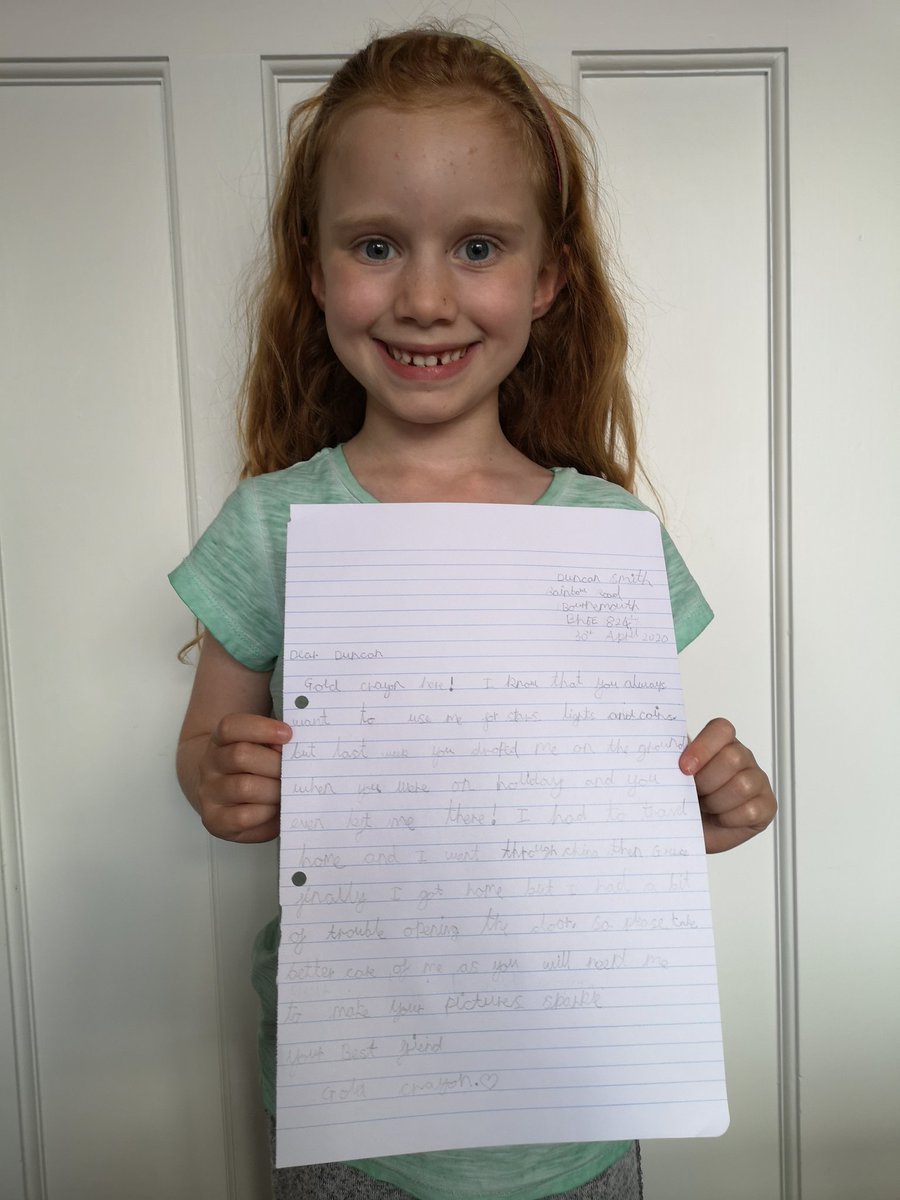 Duncan Smith
Rainbow road
Bournemouth
30th April 2020
Dear Duncan
Gold crayon here! I know that you always
want to use me for stars lights and coins
but last week you droped me on the ground
when you were on holiday and you
even left me there! I had to travel
home and I went through china then
finally I got home but I had a bit
of trouble opening the door. So please take
better care of me as you will need me
to make your pictures sparkle
your Best friend
Gold crayon.♡